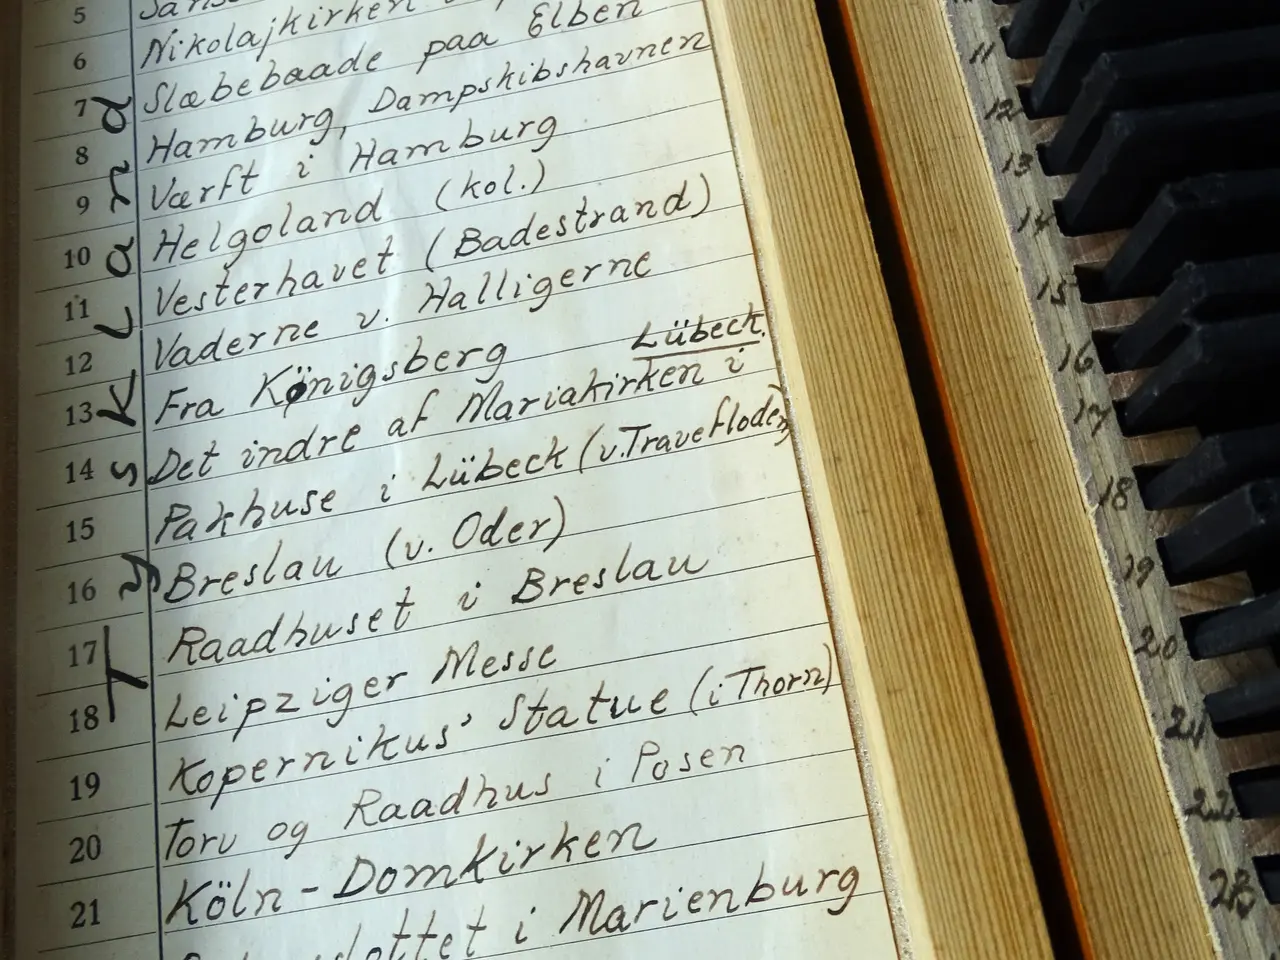 5
Nikolajkirken
6 Slæbebaade paa Elben
7 Hamburg, Dampskibshavnen
8 Værft i Hamburg
9 Helgoland (kol.)
10 Vesterhavet (Badestrand)
11 Vaderne v. Halligerne
12 Fra Königsberg
Lübeck.
13 Det indre af Mariakirken i
14 Pakhuse i Lübeck (v. Travefloden)
15 Breslau (v. Oder)
16 Raadhuset i Breslau
17 Leipziger Messe
18 Kopernikus' Statue (i Thorn)
19 Torv og Raadhus i Posen
20 Köln - Domkirken
21 i Marienburg
Tyskland
11
12
13
14
15
16
17
18
19
20
21
22
23